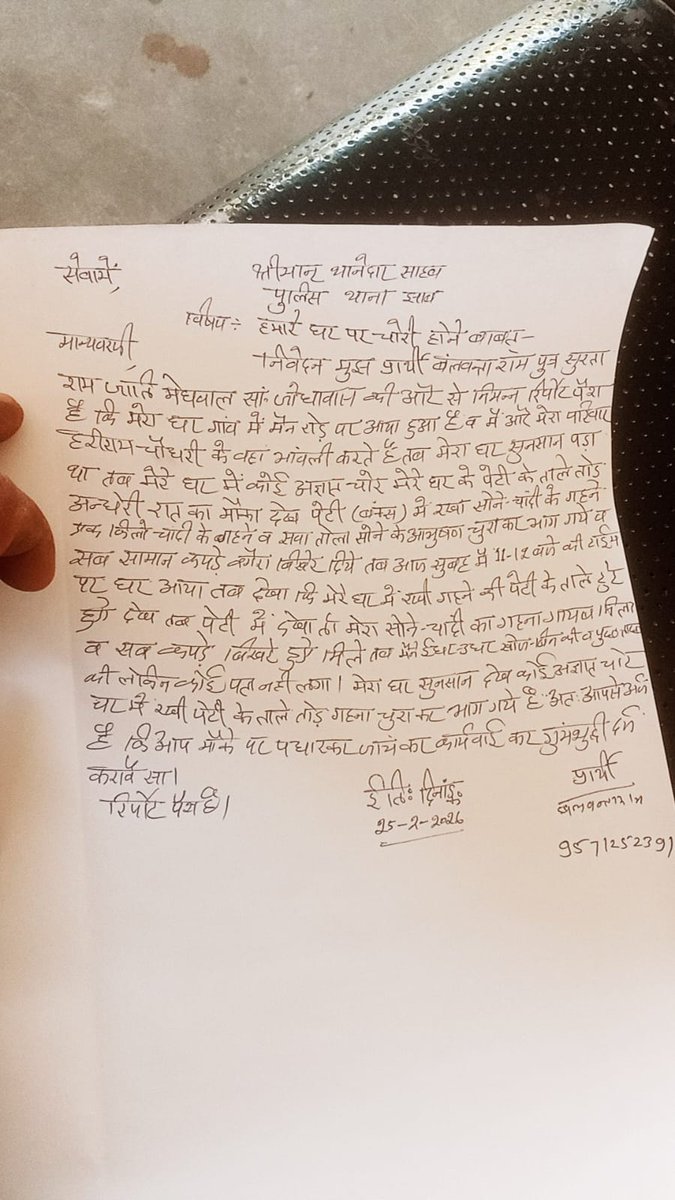 सेवामें,
श्रीमान् थानेदार साहब
पुलिस थाना झाब
विषय:- हमारे घर पर चोरी होने बाबत् -
मान्यवरजी,
निवेदन मुझ प्रार्थी बलवन्ता राम पुत्र सुरता
राम जाति मेघवाल सां. जोधावास की ओर से निम्न रिपोर्ट पेश
है कि मेरा घर गांव में मैन रोड़ पर आया हुआ है व मैं और मेरा परिवार
हरीराम चौधरी के वहा भांवली करते है तब मेरा घर सुनसान पड़ा
था तब मेरे घर में कोई अज्ञात चोर मेरे घर के पेटी के ताले तोड़
अन्धेरी रात का मौका देख पेटी (बक्स) में रखा सोने-चांदी के गहने
एक किलो चान्दी के गहने व सवा तोला सोने के आभुषण चुराकर भाग गये व
सब सामान कपड़े वगैरा बिखेर दिये तब आज सुबह मैं 11-12 बजे की टाईम
पर घर आया तब देखा कि मेरे घर में रखी गहने की पेटी के ताले टुटे
हुऐ देख तब पेटी में देखा तो मेरा सोने-चादी का गहना गायब मिला
व सब कपड़े बिखरे हुऐ मिले तब मैंने ईधर उधर खोज-बिन की व पुछताछ
की लेकिन कोई पता नही लगा। मेरा घर सुनसान देख कोई अज्ञात चोर
घर में रखी पेटी के ताले तोड़ गहना चुराकर भाग गये है अतः आपसे अर्ज
है कि आप मौके पर पधारकर जांच कर कार्यवाई कर दर्ज
करावै सा।
रिपोर्ट पेश है।
ईति: दिनांक:
25-2-2026
प्रार्थी
बलवन्ताराम
9571252391